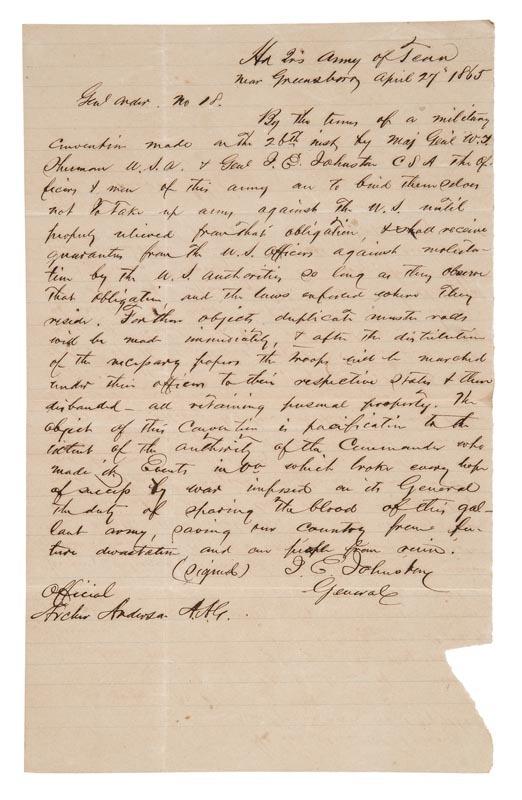 Hd Qrs Army of Tenn
near Greensboro April 27" 1865
Genl order. No 18.
By the terms of a military
Convention made on the 26th inst, by Maj Genl W.T.
Sherman U.S.A. & Genl J. E. Johnston C S A the of-
ficers & men of this army are to bind themselves
not to take up arms against the U.S. until
properly relieved from that obligation, & shall receive
guarantees from the U.S. Officers against molesta-
tion by the U.S. Authorities so long as they observe
that obligation and the laws enforced where they
reside. For these objects duplicate muster rolls
will be made immediately, & after the distribution
of the necessary papers the troops will be marched
under their officers to their respective States & there
disbanded - all retaining personal property. The
object of this Convention is pacification to the
extent of the authority of the Commander who
made it. Events in Va which broke every hope
of success by war imposed on its General
the duty of sparing the blood of this gal-
lant army, saving our Country from fu-
ture devastation and our people from ruin.
(signed) J. E. Johnston
General
Official
Archer Anderson A.A.G.